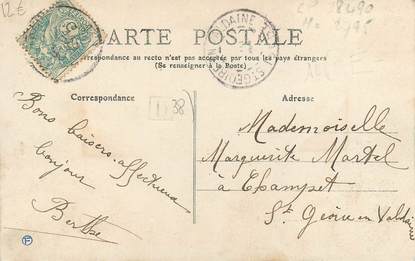 12€
CARTE POSTALE
La Correspondance au recto n'est pas acceptée par tous les pays étrangers
(Se renseigner à la Poste)
Correspondance
Adresse
D 38
Bons baisers affectueux
bonjour
Berthe
Mademoiselle
Marguerite Martel
à Champet
St Geoire en Valdaine